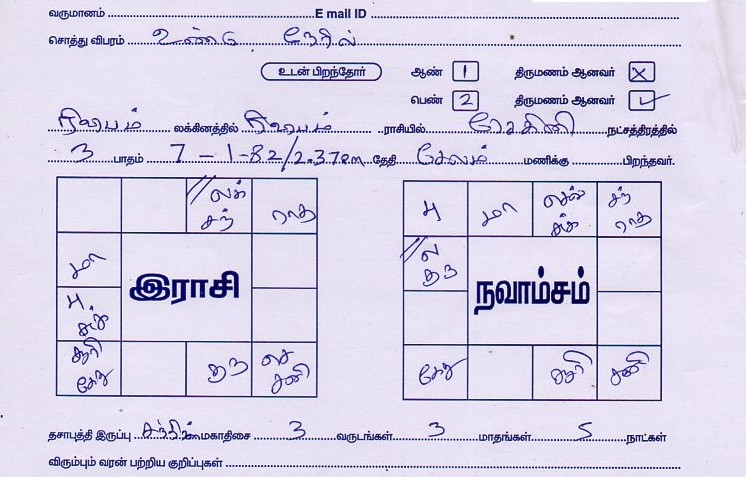 வருமானம் E mail ID
சொத்து விபரம் உண்டு நேரில்
உடன் பிறந்தோர் ஆண் 1 திருமணம் ஆனவர் X
பெண் 2 திருமணம் ஆனவர் ✓
ரிஷபம் லக்கினத்தில் ரிஷபம் ராசியில் ரோகினி நட்சத்திரத்தில்
3 பாதம் 7-1-82/2.37pm தேதி சேலம் மணிக்கு பிறந்தவர்.
லக் சந் ராகு
மா
பு. சுக்
சூரி கேது குரு செ சனி
இராசி
பு மா செவ் சுக் சந் ராகு
ல குரு
கேது சூரி சனி
நவாம்சம்
தசாபுத்தி இருப்பு சந்திர மகாதிசை 3 வருடங்கள் 3 மாதங்கள் 5 நாட்கள்
விரும்பும் வரன் பற்றிய குறிப்புகள்